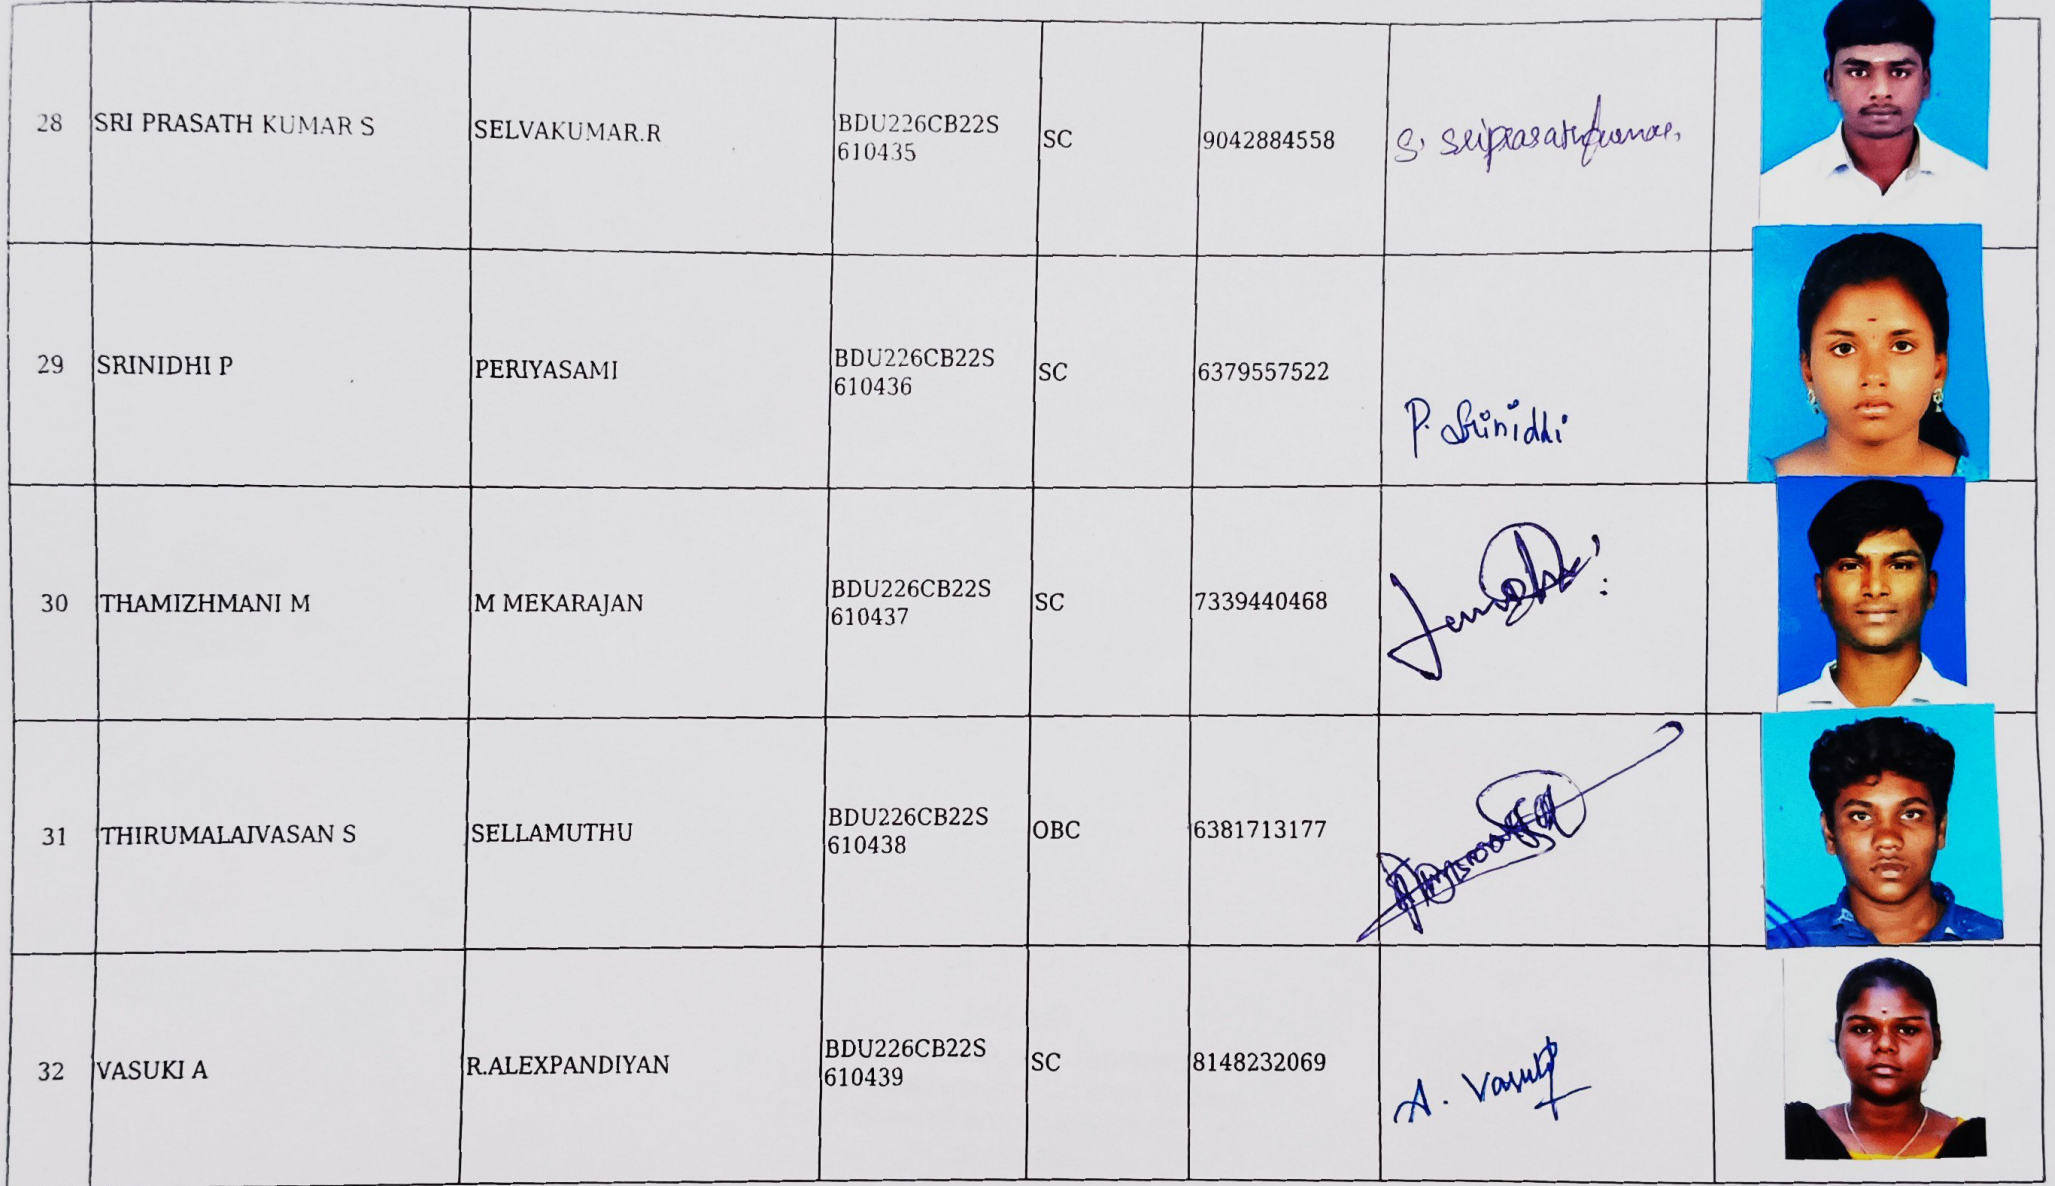 28 SRI PRASATH KUMAR S SELVAKUMAR.R BDU226CB22S SC 9042884558 S. Sriprasathkumar.
610435
29 SRINIDHI P PERIYASAMI BDU226CB22S SC 6379557522
610436
P. Srinidhi
30 THAMIZHMANI M M MEKARAJAN BDU226CB22S SC 7339440468
610437
31 THIRUMALAIVASAN S SELLAMUTHU BDU226CB22S OBC 6381713177
610438
32 VASUKI A R.ALEXPANDIYAN BDU226CB22S SC 8148232069
610439
A. Vasuki